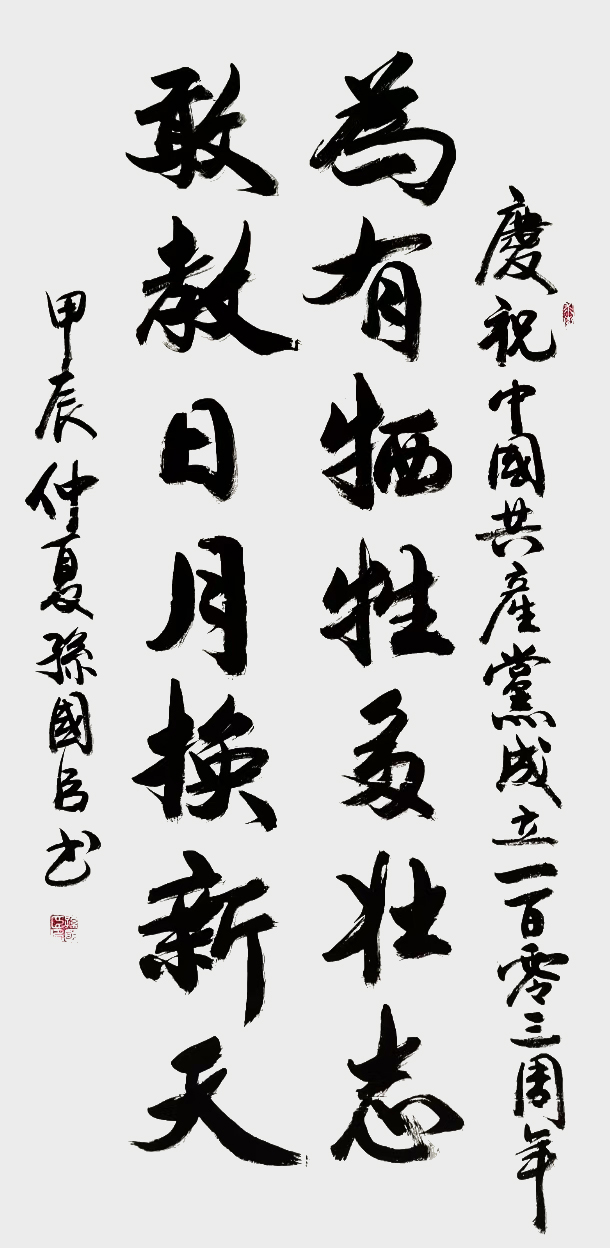 慶祝中國共產黨成立一百零三周年
為有牺牲多壮志
敢教日月换新天
甲辰仲夏孫國良书